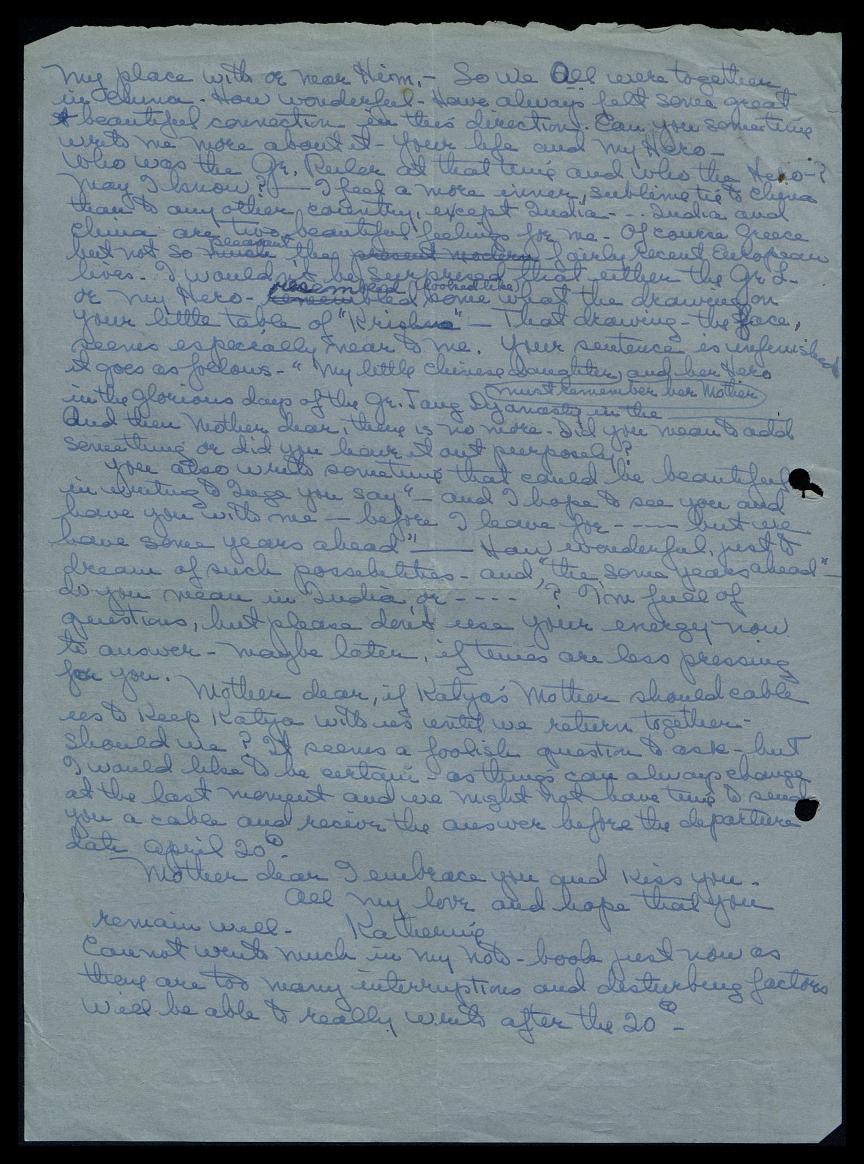 my place with or near Him. – So we All were together
in China. How wonderful – Have always felt some great
& beautiful connection in this direction. Can you sometime
write me more about it – your life and my Hero –
Who was the Gr. Ruler at that time and who the Hero – ?
May I know? — I feel a more inner, sublime tie to China
than to any other country, except India - - . India and
China are two beautiful feelings for me. Of course Greece
but not so much pleasant they present modern fairly recent European
lives. I would not be surprised that either the Gr L-
or my Hero – resembled (looked like) some what the drawing on
your little table of "Krishna" – That drawing – the face,
seems especially near to me. Your sentence is unfinished
it goes as follows – " My little Chinese daughter, and her Hero
must remember her Mother
in the glorious days of the Gr. Tang Dyanasty in the ______
And then Mother dear, there is no more. Did you mean to add
something or did you leave it out purposely?
You also write something that could be beautiful
in writing to Inge you say "– and I hope to see you and
have you with me – before I leave for - - - - but we
have some years ahead" — How wonderful, just to
dream of such possibilities – and, "the some years ahead" –
do you mean in India, or - - - - ? I'm full of
questions, but please don't use your energy now
to answer – maybe later, if times are less pressing
for you.
Mother dear, if Katya's Mother should cable
us to keep Katya with us until we return together –
should we? It seems a foolish question to ask – but
I would like to be certain – as things can always change
at the last moment and we might not have time to send
you a cable and recive the answer before the departure
date April 20th.
Mother dear I embrace you and kiss you.
All my love and hope that you
remain well. Katherine
Cannot write much in my note-book just now as
there are too many interruptions and disturbing factors
Will be able to really write after the 20th –